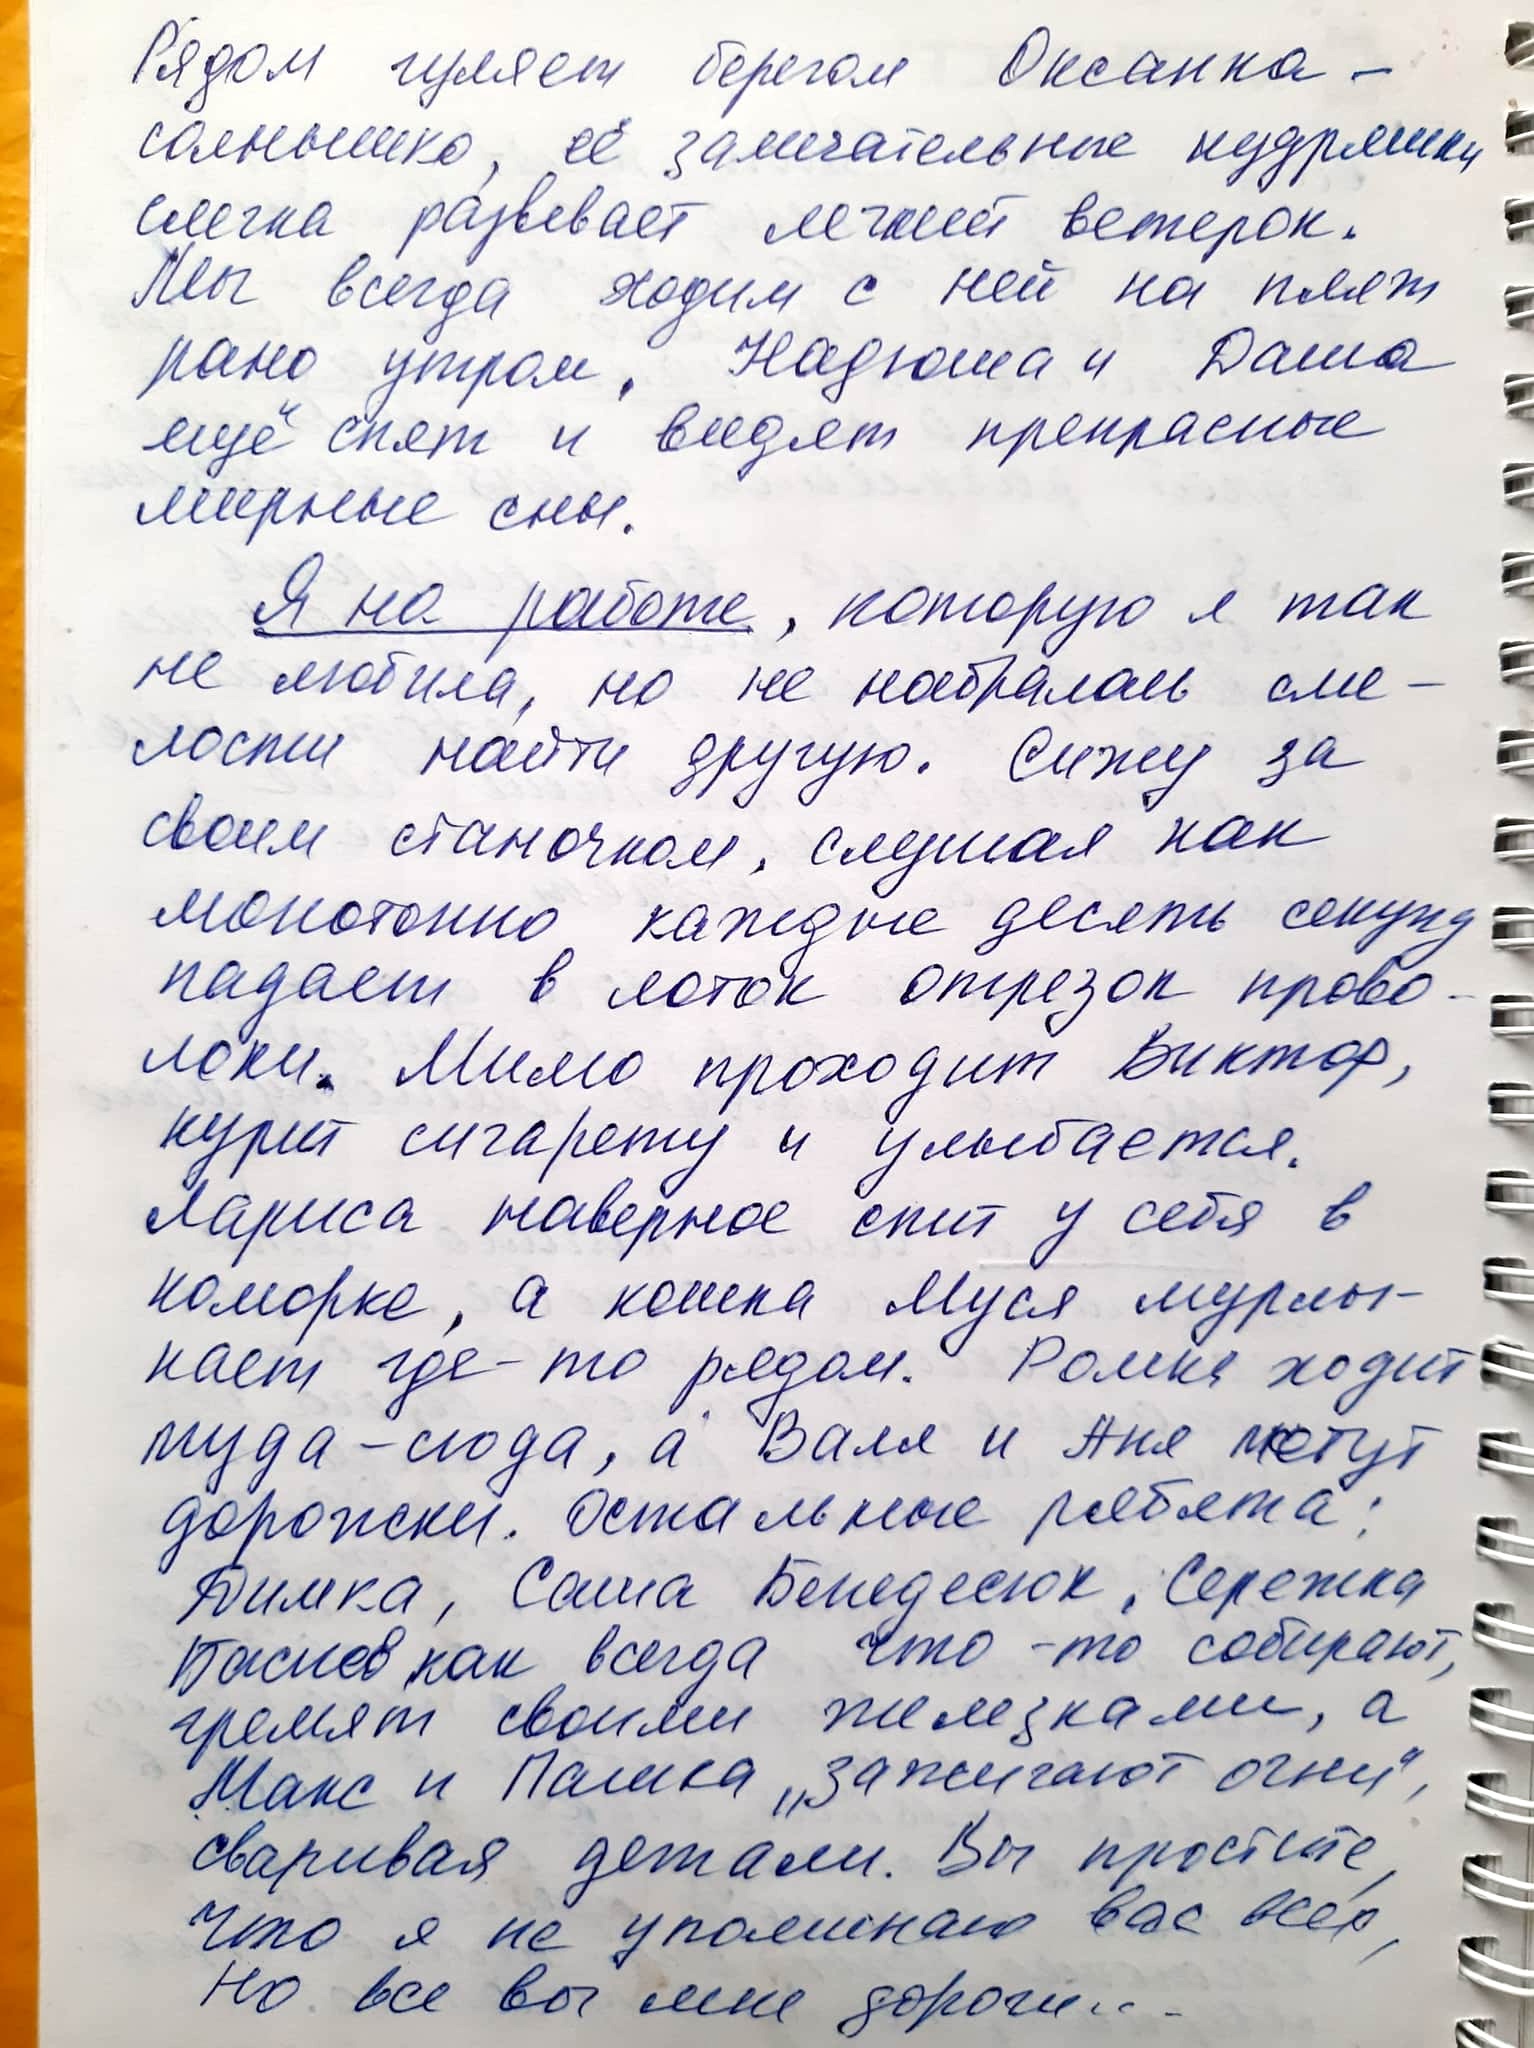 Рядом гуляет берегом Оксанка -
солнышко, её замечательные кудряшки
слегка развевает легкий ветерок.
Мы всегда ходим с ней на пляж
рано утром. Надюша и Даша
ещё спят и видят прекрасные
мирные сны.
Я на работе, которую я так
не любила, но не набралась сме-
лости найти другую. Сижу за
своим станочком, слушая как
монотонно каждые десять секунд
падает в лоток отрезок прово-
локи. Мимо проходит Виктор,
курит сигарету и улыбается.
Лариса наверное спит у себя в
коморке, а кошка Муся мурлы-
кает где-то рядом. Ромка ходит
туда-сюда, а Валя и Аня метут
дорожки. Остальные ребята:
Димка, Саша Бенедесюк, Сережка
как всегда что-то собирают,
гремят своими железками, а
Макс и Пашка „зажигают огни",
сваривая детали. Вы простите,
что я не упоминаю вас всех,
но все вы мне дороги...